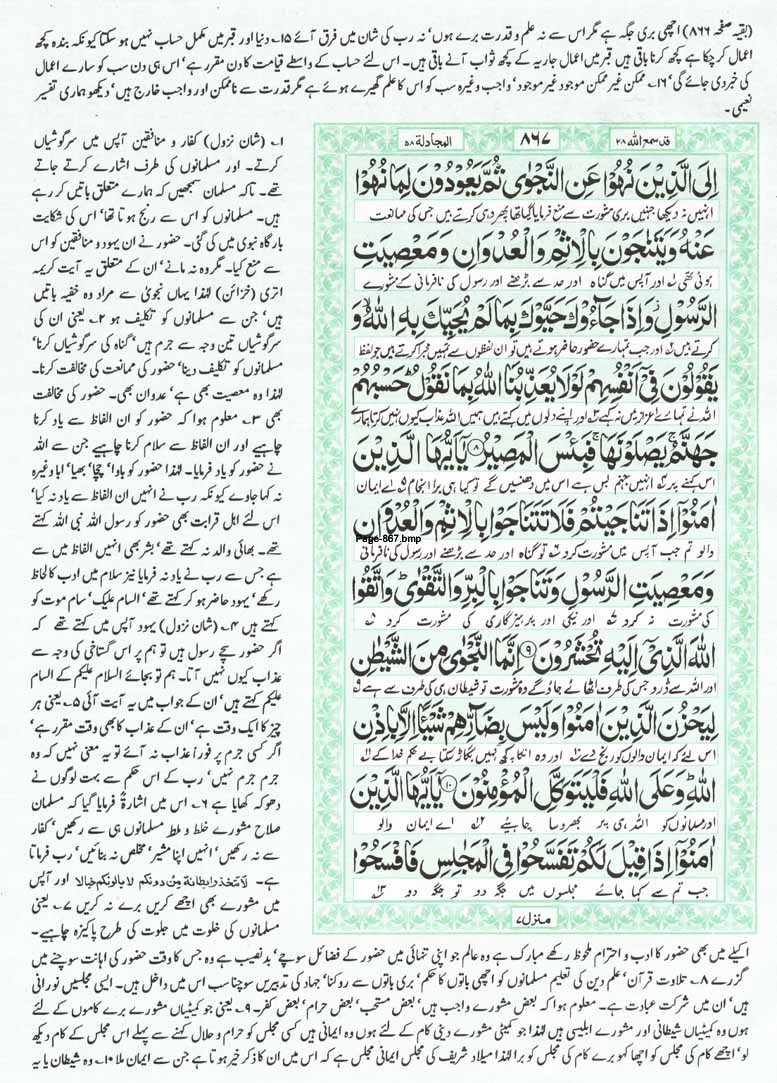 (بقیہ صفحہ ۸۶۶) اچھی بری جگہ ہے مگر اس سے نہ علم و قدرت برے ہوں' نہ رب کی شان میں فرق آئے ۱۵؎ دنیا اور قبر میں مکمل حساب نہیں ہو سکتا کیونکہ بندہ کچھ
اعمال کر چکا ہے کچھ کرنا باقی ہیں قبر میں اعمال جاریہ کے کچھ ثواب آنے باقی ہیں۔ اس لئے حساب کے واسطے قیامت کا دن مقرر ہے' اس ہی دن سب کو سارے اعمال
کی خبر دی جائے گی' ۱۶؎ ممکن غیر ممکن موجود غیر موجود' واجب وغیرہ سب کو اس کا علم گھیرے ہوئے ہے مگر قدرت سے ناممکن اور واجب خارج ہیں' دیکھو ہماری تفسیر
نعیمی۔
قد سمع اللہ ۲۸ ۸۶۷ المجادلة ۵۸
اِلَى الَّذِيْنَ نُهُوْا عَنِ النَّجْوٰى ثُمَّ يَعُوْدُوْنَ لِمَا نُهُوْا
انہیں نہ دیکھا جنہیں بری مشورت سے منع فرمایا گیا تھا پھر وہی کرتے ہیں جس کی ممانعت
عَنْهُ وَيَتَنٰجَوْنَ بِالْاِثْمِ وَالْعُدْوَانِ وَمَعْصِيَتِ
ہوئی تھی اور آپس میں گناہ اور حد سے بڑھنے اور رسول کی نافرمانی کے مشورے
الرَّسُوْلِ وَاِذَا جَآءُوْكَ حَيَّوْكَ بِمَا لَمْ يُحَيِّكَ بِهِ اللّٰهُ وَ
کرتے ہیں اور جب تمہارے حضور حاضر ہوتے ہیں تو ان لفظوں سے تمہیں مجرا کرتے ہیں جو لفظ
يَقُوْلُوْنَ فِيْٓ اَنْفُسِهِمْ لَوْلَا يُعَذِّبُنَا اللّٰهُ بِمَا نَقُوْلُ حَسْبُهُمْ
اللہ نے تمہارے اعزاز میں نہ کہے اور اپنے دلوں میں کہتے ہیں ہمیں اللہ عذاب کیوں نہیں کرتا ہمارے
جَهَنَّمُ يَصْلَوْنَهَا فَبِئْسَ الْمَصِيْرُ ۸ يٰٓاَيُّهَا الَّذِيْنَ
اس کہنے پر انہیں جہنم بس ہے اس میں دھنسیں گے تو کیا ہی برا انجام اے ایمان
اٰمَنُوْٓا اِذَا تَنَاجَيْتُمْ فَلَا تَتَنَاجَوْا بِالْاِثْمِ وَالْعُدْوَانِ
Page-867.bmp
والو تم جب آپس میں مشورت کرو تو گناہ اور حد سے بڑھنے اور رسول کی نافرمانی
وَمَعْصِيَتِ الرَّسُوْلِ وَتَنَاجَوْا بِالْبِرِّ وَالتَّقْوٰى وَاتَّقُوا
کی مشورت نہ کرو اور نیکی اور پرہیزگاری کی مشورت کرو
اللّٰهَ الَّذِيْٓ اِلَيْهِ تُحْشَرُوْنَ ۹ اِنَّمَا النَّجْوٰى مِنَ الشَّيْطٰنِ
اور اللہ سے ڈرو جس کی طرف اٹھائے جاؤ گے وہ مشورت تو شیطان ہی کی طرف سے ہے
لِيَحْزُنَ الَّذِيْنَ اٰمَنُوْا وَلَيْسَ بِضَآرِّهِمْ شَيْئًا اِلَّا بِاِذْنِ
اس لئے کہ ایمان والوں کو رنج دے اور وہ انکا کچھ نہیں بگاڑ سکتا بے حکم خدا کے
اللّٰهِ وَعَلَى اللّٰهِ فَلْيَتَوَكَّلِ الْمُؤْمِنُوْنَ ۱۰ يٰٓاَيُّهَا الَّذِيْنَ
اور مسلمانوں کو اللہ ہی پر بھروسا چاہیئے اے ایمان والو
اٰمَنُوْٓا اِذَا قِيْلَ لَكُمْ تَفَسَّحُوْا فِي الْمَجٰلِسِ فَافْسَحُوْا
جب تم سے کہا جائے مجلسوں میں جگہ دو تو جگہ دو
منزل ۷
۱؎ (شان نزول) کفار و منافقین آپس میں سرگوشیاں
کرتے۔ اور مسلمانوں کی طرف اشارے کرتے جاتے
تھے۔ تاکہ مسلمان سمجھیں کہ ہمارے متعلق باتیں کر رہے
ہیں۔ مسلمانوں کو اس سے رنج ہوتا تھا' اس کی شکایت
بارگاہ نبوی میں کی گئی۔ حضور نے ان یہود و منافقین کو اس
سے منع کیا۔ مگر وہ نہ مانے' ان کے متعلق یہ آیت کریمہ
اتری (خزائن) لہٰذا یہاں نجویٰ سے مراد وہ خفیہ باتیں
ہیں' جن سے مسلمانوں کو تکلیف ہو ۲؎ یعنی ان کی
سرگوشیاں تین وجہ سے جرم ہیں' گناہ کی سرگوشیاں کرنا'
مسلمانوں کو تکلیف دینا' حضور کی ممانعت کی مخالفت کرنا۔
لہٰذا وہ معصیت بھی ہے' عدوان بھی۔ حضور کی مخالفت
بھی ۳؎ معلوم ہوا کہ حضور کو ان الفاظ سے یاد کرنا
چاہیے اور ان الفاظ سے سلام کرنا چاہیے جن سے اللہ
نے حضور کو یاد فرمایا۔ لہٰذا حضور کو باوا' چچا' بھیا' ابا وغیرہ
نہ کہا جاوے کیونکہ رب نے انہیں ان الفاظ سے یاد نہ کیا'
اس لئے اہل قرابت بھی حضور کو رسول اللہ نبی اللہ کہتے
تھے۔ بھائی والد نہ کہتے تھے' بشر بھی انہیں الفاظ میں سے
ہے جس سے رب نے یاد نہ فرمایا نیز سلام میں ادب کا لحاظ
رکھے' یہود حاضر ہو کر کہتے تھے' السام علیک' سام موت کو
کہتے ہیں ۴؎ (شان نزول) یہود آپس میں کہتے تھے کہ
اگر حضور سچے رسول ہیں تو ہم پر اس گستاخی کی وجہ سے
عذاب کیوں نہیں آتا۔ ہم تو بجائے السلام علیکم کے السام
علیکم کہتے ہیں' ان کے جواب میں یہ آیت آئی ۵؎ یعنی ہر
چیز کا ایک وقت ہے' ان کے عذاب کا بھی وقت مقرر ہے'
اگر کسی جرم پر فوراً عذاب نہ آئے تو یہ معنی نہیں کہ وہ
جرم جرم نہیں' رب کے اس حکم سے بہت لوگوں نے
دھوکہ کھایا ہے ۶؎ اس میں اشارۃً فرمایا گیا کہ مسلمان
صلاح مشورے خلط و ملط مسلمانوں ہی سے رکھیں' کفار
سے نہ رکھیں' انہیں اپنا مشیر' مخلص نہ بنائیں' رب فرماتا
ہے۔ لا تتخذوا بطانة من دونكم لا يالونكم خبالا اور آپس
میں مشورے بھی اچھے کریں برے نہ کریں ۷؎ یعنی
مسلمانوں کی خلوت میں جلوت کی طرح پاکیزہ چاہیے۔
اکیلے میں بھی حضور کا ادب و احترام ملحوظ رکھے مبارک ہے وہ عالم جو اپنی تنہائی میں حضور کے فضائل سوچے' بدنصیب ہے وہ جس کا وقت حضور کی اہانت سوچنے میں
گزرے ۸؎ تلاوت قرآن' علم دین کی تعلیم مسلمانوں کو اچھی باتوں کا حکم' بری باتوں سے روکنا' جہاد کی تدبیریں سوچنا سب اس میں داخل ہیں۔ ایسی مجلسیں نورانی
ہیں' ان میں شرکت عبادت ہے۔ معلوم ہوا کہ بعض مشورے واجب ہیں' بعض مستحب' بعض حرام' بعض کفر۔ ۹؎ یعنی جو کمیٹیاں مشورے برے کاموں کے لئے
ہوں وہ کمیٹیاں شیطانی اور مشورے ابلیسی ہیں لہٰذا جو کمیٹی مشورے دینی کام کے لئے ہوں وہ ایمانی ہیں کسی مجلس کو حرام و حلال کہنے سے پہلے اس مجلس کے کام دیکھ
لو' اچھے کام کی مجلس کو اچھا کہو برے کام کی مجلس کو برا لہٰذا میلاد شریف کی مجلس ایمانی مجلس ہے کہ اس میں ان کا ذکر خیر ہوتا ہے جن سے ایمان ملا ۱۰؎ وہ شیطان یا یہ